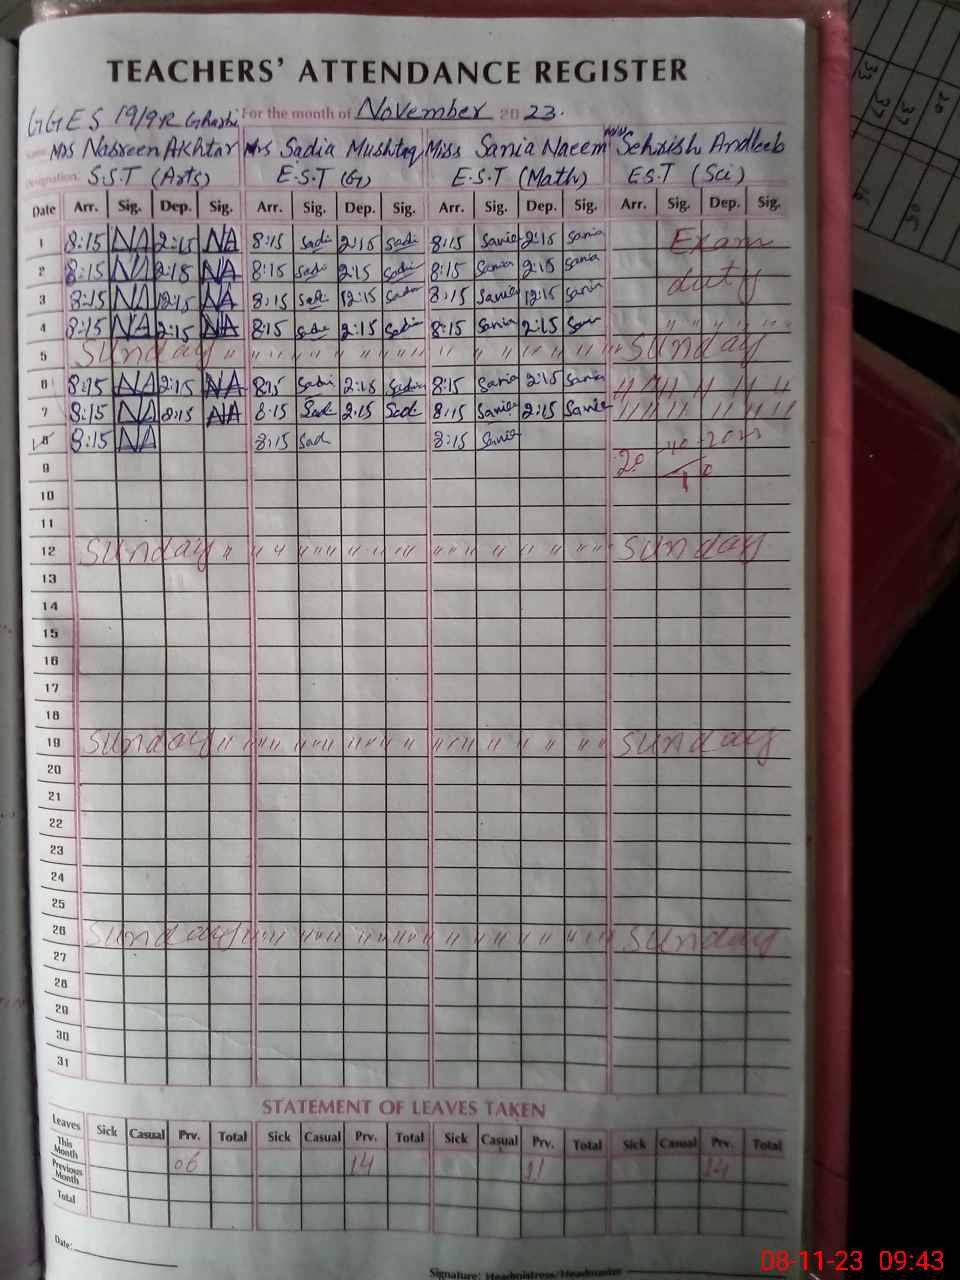 TEACHERS' ATTENDANCE REGISTER
GGES 19/9R For the month of November 2023.
Name: Mrs Nasreen Akhtar Mrs Sadia Mushtaq Miss Sania Naeem Sehrish Andleeb
Designation: S.S.T (Arts) E.S.T (G) E.S.T (Math) E.S.T (Sci)
Date Arr. Sig. Dep. Sig. Arr. Sig. Dep. Sig. Arr. Sig. Dep. Sig. Arr. Sig. Dep. Sig.
1 8:15 NA 2:15 NA 8:15 Sadi 2:15 Sadi 8:15 Sania 2:15 Sania Exam
2 8:15 NA 2:15 NA 8:15 Sadi 2:15 Sadi 8:15 Sania 2:15 Sania duty
3 8:15 NA 12:15 NA 8:15 Sadi 12:15 Sadi 8:15 Sania 12:15 Sania
4 8:15 NA 2:15 NA 8:15 Sadi 2:15 Sadi 8:15 Sania 2:15 Sania " " " " " "
5 Sunday " " " " " " " " " " " " Sunday
6 8:15 NA 2:15 NA 8:15 Sadi 2:15 Sadi 8:15 Sania 2:15 Sania " " " " " "
7 8:15 NA 2:15 NA 8:15 Sadi 2:15 Sadi 8:15 Sania 2:15 Sania " " " " " "
8 8:15 NA 8:15 Sad 8:15 Sania
9
10
11
12 Sunday " " " " " " " " " " " " Sunday
13
14
15
16
17
18
19 Sunday " " " " " " " " " " " " Sunday
20
21
22
23
24
25
26 Sunday " " " " " " " " " " " " Sunday
27
28
29
30
31
STATEMENT OF LEAVES TAKEN
Leaves Sick Casual Prv. Total Sick Casual Prv. Total Sick Casual Prv. Total Sick Casual Prv. Total
This Month 06 14 11 14
Previous Month
Total
Date:
Signature: Headmistress/Headmaster
08-11-23 09:43